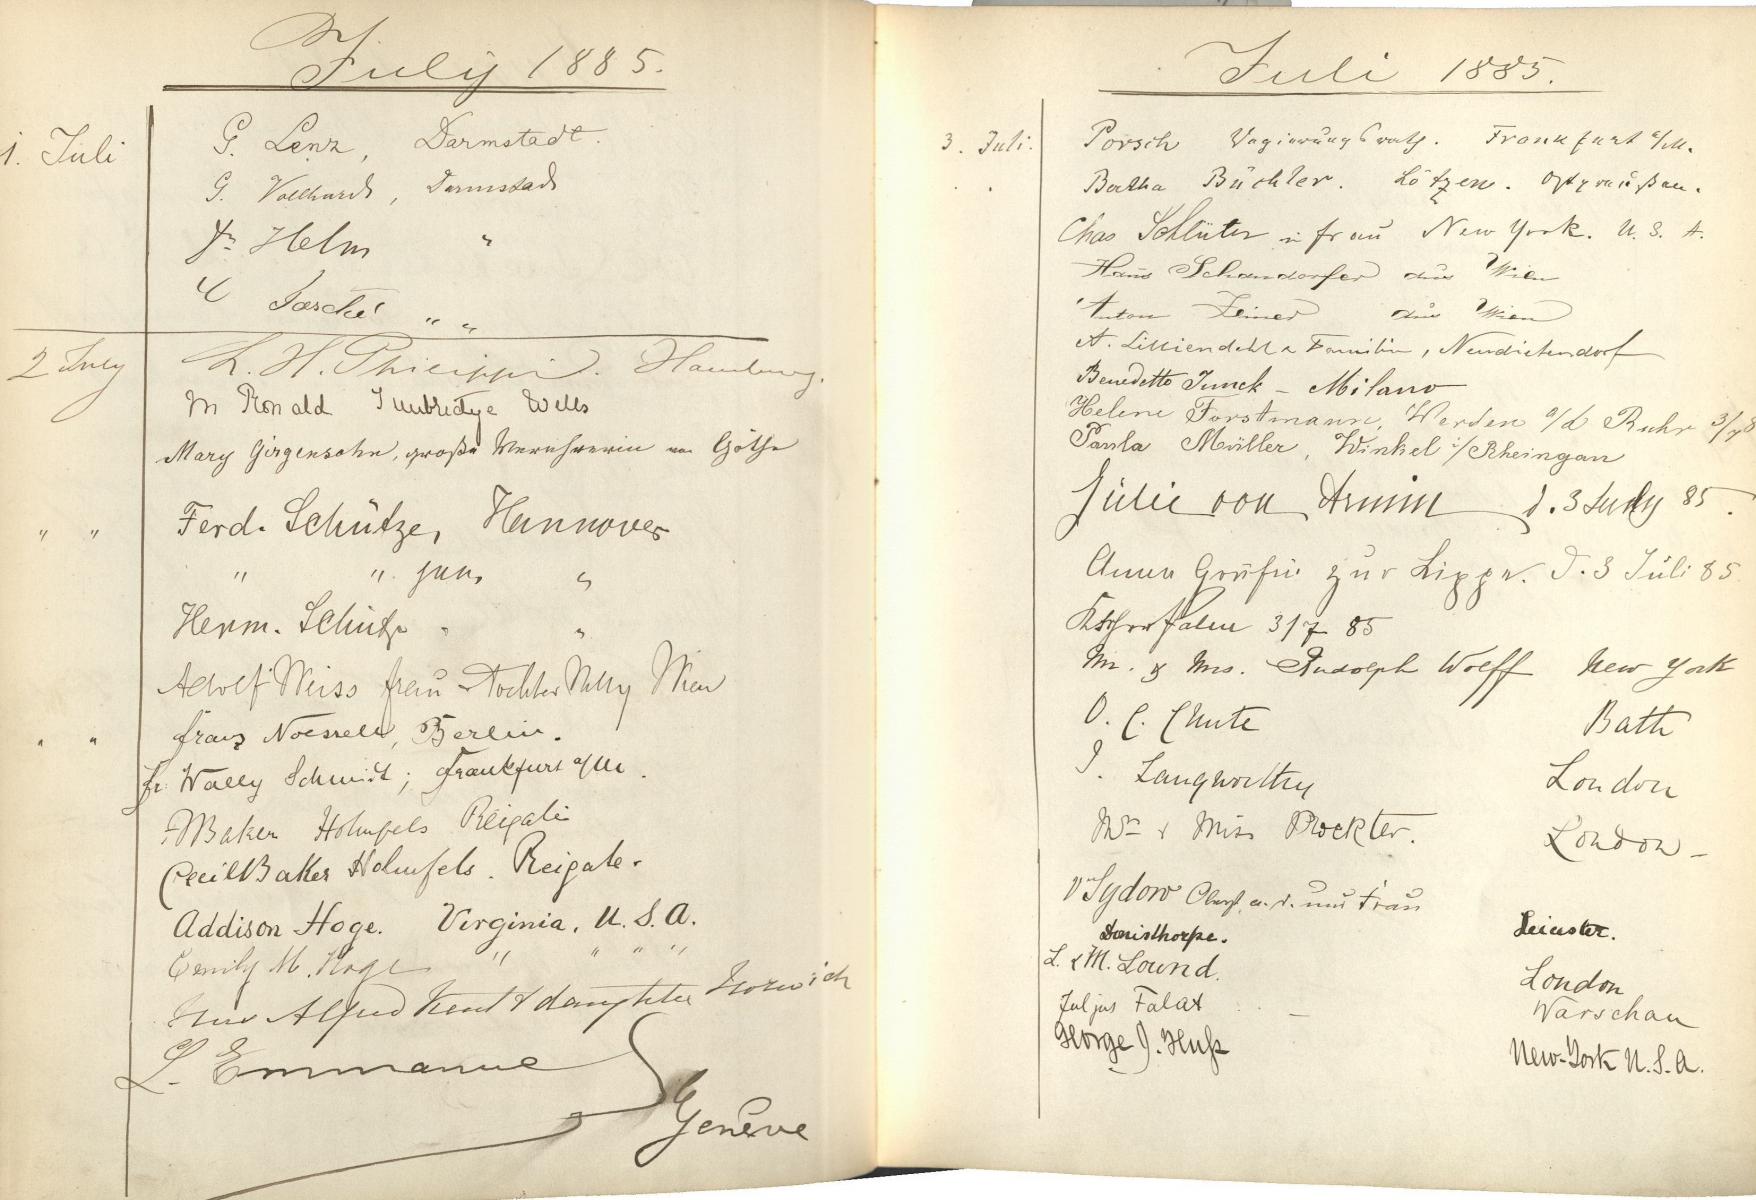 July 1885.
1. Juli
G. Lenz, Darmstadt.
G. Volhard, Darmstadt
Fr Helm "
" "
2 July
L. H. Philippi. Hamburg.
M Ronald Tunbridge Wells
Mary Girgensohn, große Verehrerin von Göthe
" " Ferd. Schütze, Hannover
" " jun. "
Herm. Schütze " "
Adolf Weiss frau Tochter Nelly Wien
" " Franz Noessell, Berlin.
Fr Wally Schmidt; Frankfurt a/M.
Baker Holmfels Reigate
Cecil Baker Holmfels. Reigate.
Addison Hoge. Virginia, U. S. A.
Emily M. Hoge " " " "
Mrs Alfred Kent & daughter Norwich
L. Emmanuel
Genève
Juli 1885.
3. Juli. Porsch Regierungsrath. Frankfurt a/M.
Bertha Büchler. Lötzen. Ostpreußen.
Chas Schlüter u frau New York. U. S. A.
Hans Schandorfer aus Wien
Anton Zeiner aus Wien
A. Liliendahl u Familie, Neudietendorf
Benedetto Junck - Milano
Helene Forstmann, Werden a/d Ruhr 3/7 8
Paula Müller, Winkel i/Rheingau
Julie von Arnim d. 3 July 85.
Anna Gräfin zur Lippe. d. 3 Juli 85
3/7 85
Mr. & Mrs. Rudolph Wolff New York
O. C. Chute Bath
J. Langworthy London
Mr & Miss Prockter. London -
v Sydow Oberst a. d. und Frau
Donisthorpe. Leicester.
L. & M. Lound. London
Juljus Falat Warschau
George J. Huß New-York U. S. A.